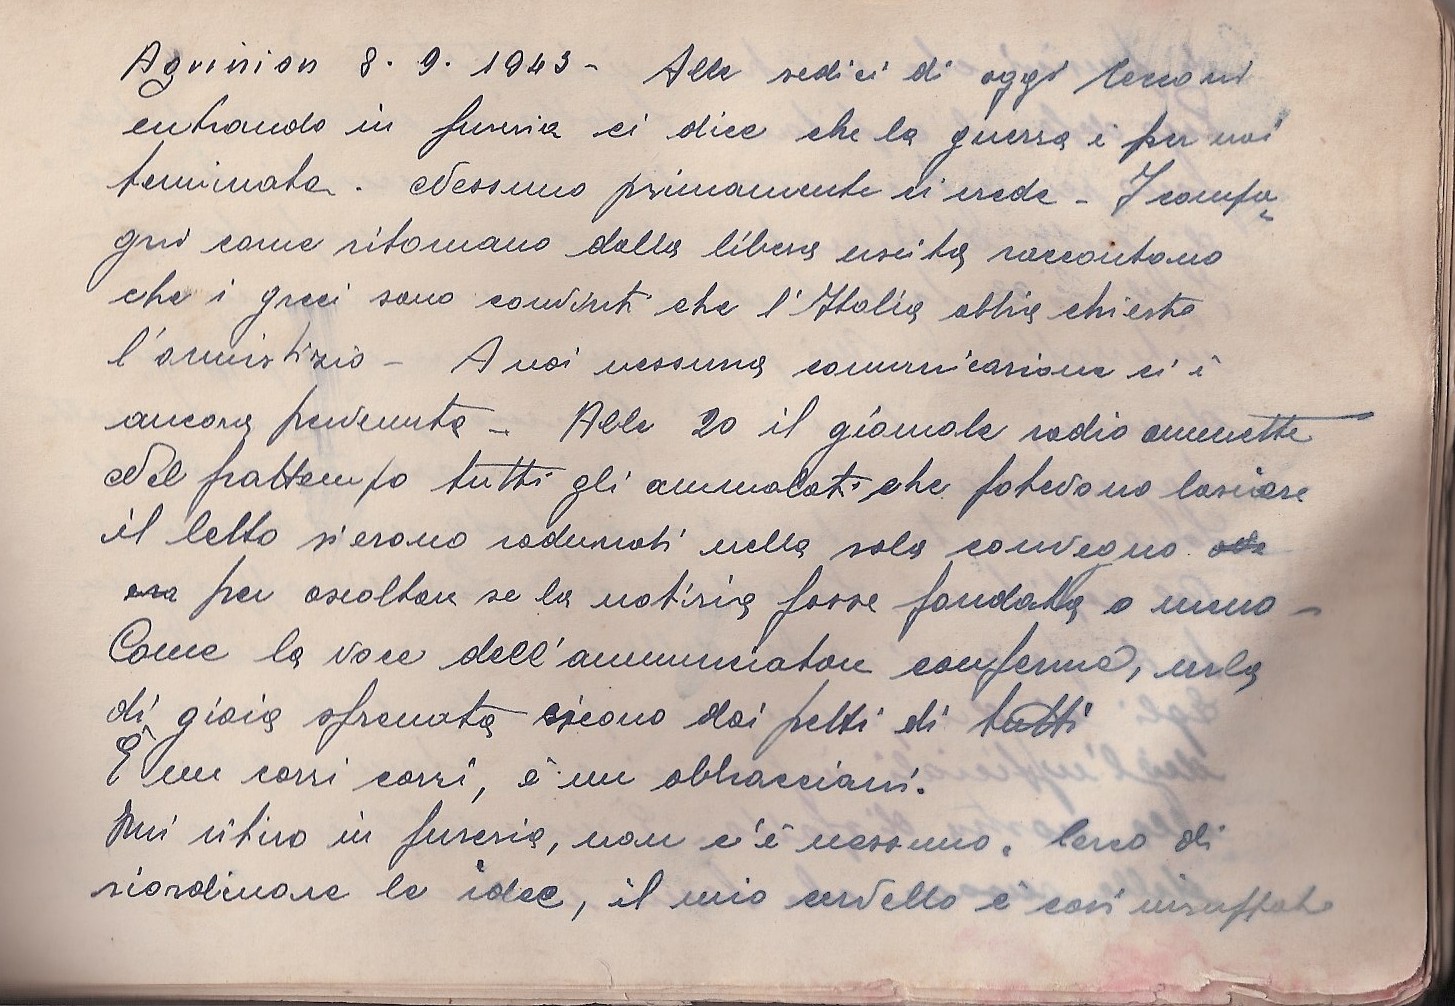 Agrinion 8. 9. 1943 - Alle sedici di oggi
entrando in fureria ci dice che la guerra è per noi
terminata. Nessuno primamente ci crede - I compa=
gni come ritornano dalla libera uscita raccontano
che i greci sono convinti che l'Italia abbia chiesto
l'armistizio - A noi nessuna comunicazione ci è
ancora pervenuta - Alle 20 il giornale radio ammette
Nel frattempo tutti gli ammalati che potevano lasciare
il letto si erano radunati nella sala convegno
per ascoltare se la notizia fosse fondata o meno -
Come la voce dell'annunciatore confermò, urla
di gioia sfrenata escono dai petti di tutti
È un corri corri, è un abbracciarsi.
Mi ritiro in fureria, non c'è nessuno. Cerco di
riordinare le idee, il mio cervello è così